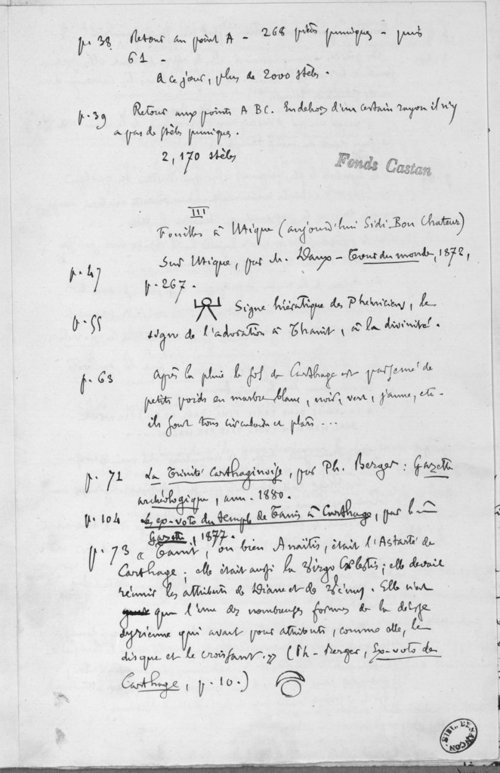 p. 38 Retour au point A - 268 stèles puniques - puis
61 -
A ce jour, plus de 2000 stèles.
p. 39 Retour aux points A BC. En dehors d'un certain rayon il n'y
a pas de stèles puniques.
2,170 stèles
Fonds Castan
III
Fouilles à Utique (aujourd'hui Sidi-Bou Chateur)
p. 47 Sur Utique, par M. Daux - Tour du monde, 1872,
p. 267.
p. 55 Signe hiératique des Phéniciens, le
signe de l'adoration à Thanit, à la divinité.
p. 63 Après la pluie le sol de Carthage est parsemé de
petits poids en marbre blanc, noir, vert, jaune, etc -
ils sont tous circulaires et plats ...
p. 71 La Trinité Carthaginoise, par Ph. Berger : Gazette
archéologique, ann. 1880.
p. 104 Les ex-voto du temple de Tanis à Carthage, par le même
Gazette, 1877.
p. 73 "Tanit, ou bien Anaïtis, était l'Astarté de
Carthage ; elle était aussi la Virgo Cœlestis ; elle devait
réunir les attributs de Diane et de Vénus. Elle n'est
que l'une des nombreuses formes de la déesse
syrienne qui avait pour attributs, comme elle, le
disque et le croissant." (Ph. Berger, Ex-voto de
Carthage, p. 10.)
BIBL. BESANÇON